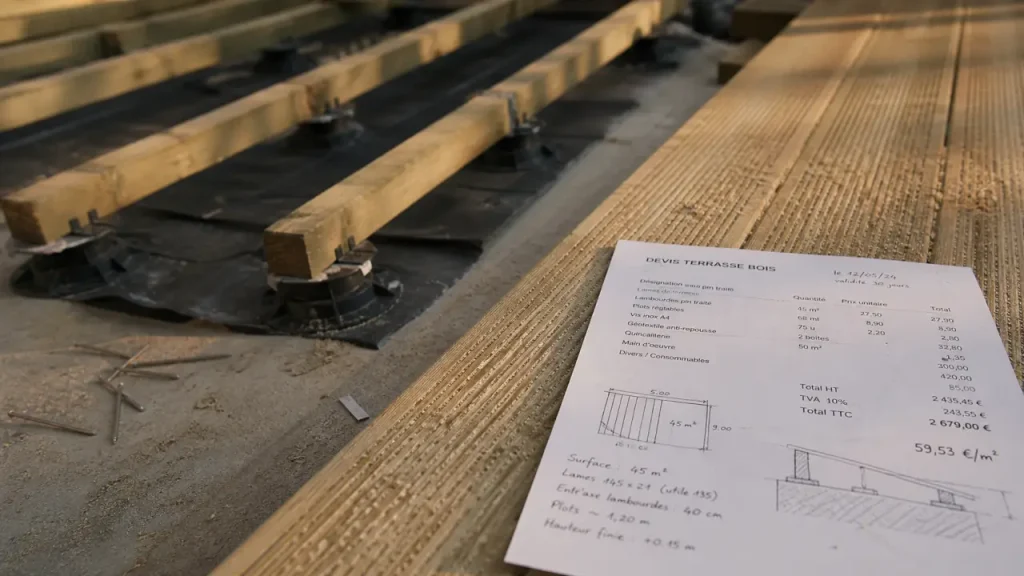 DEVIS TERRASSE BOIS
le 12/05/24
validité 30 jours
Désignation Quantité Prix unitaire Total
45 m² 27,90 27,90
Lambourdes pin traité 8,90 8,90
Plots réglables 75 u 2,20
Vis inox A4 2 boîtes 32,80
Géotextile anti-repousse 50 m² 1,35
Quincaillerie 300,00
Main d'oeuvre 420,00
Divers / Consommables 85,00
Total HT 2 435,45 €
TVA 10% 243,55 €
Total TTC 2 679,00 €
59,53 €/m²
5.00
45 m²
9,00
Surface : 45 m²
Lames 145 x 21 (utile 135)
Entr'axe lambourdes : 40 cm
Plots ~ 1,20 m
Hauteur finie : +0.15 m